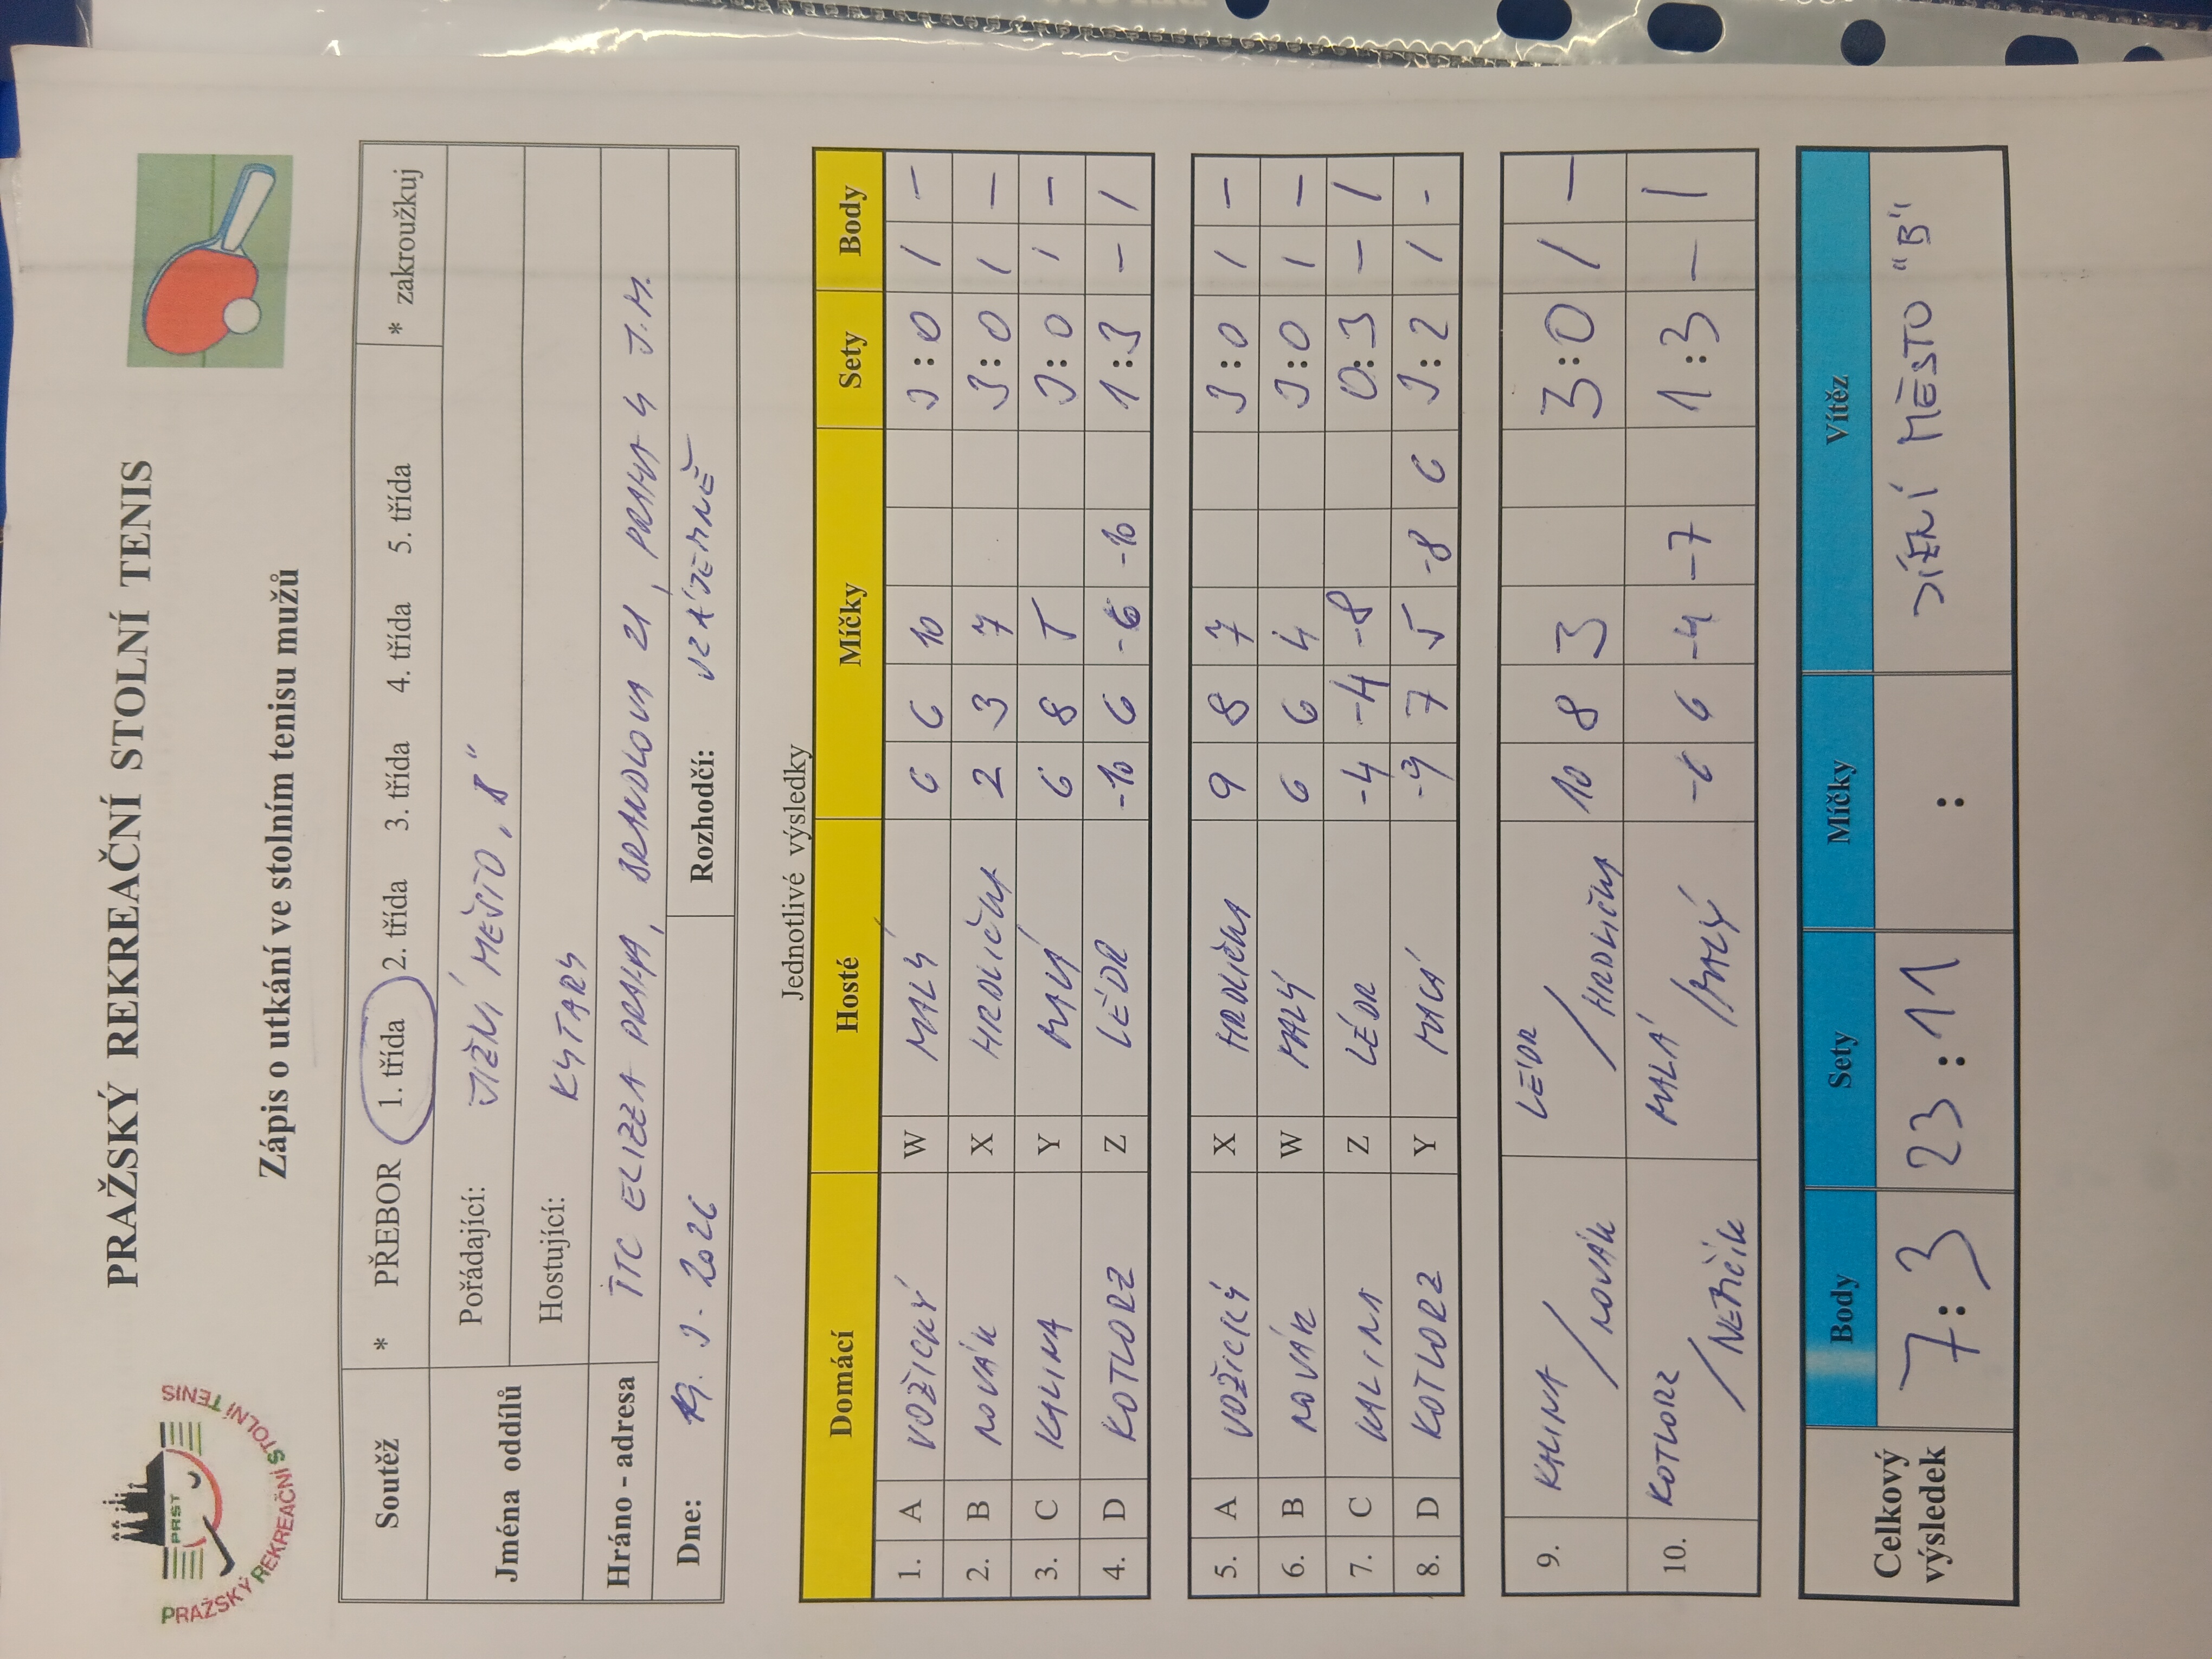 PRAŽSKÝ REKREAČNÍ STOLNÍ TENIS
PRST
PRAŽSKÝ REKREAČNÍ STOLNÍ TENIS
Zápis o utkání ve stolním tenisu mužů
Soutěž * PŘEBOR 1. třída 2. třída 3. třída 4. třída 5. třída * zakroužkuj
Jména oddílů Pořádající: JIŽNÍ MĚSTO „B"
Hostující: KYTARY
Hráno - adresa TTC ELIZZA PRAHA, BRANDLOVA 21, PRAHA 4 J.M.
Dne: 19. 3. 2026 Rozhodčí: VZÁJEMNĚ
Jednotlivé výsledky
Domácí Hosté Míčky Sety Body
1. A VOŽICKÝ W MALÝ 6 6 10 3:0 1 –
2. B NOVÁK X HRDLIČKA 2 3 7 3:0 1 –
3. C KALINA Y MALÁ 6 8 5 3:0 1 –
4. D KOTLORZ Z LÉDR -10 6 -6 -10 1:3 – 1
5. A VOŽICKÝ X HRDLIČKA 9 8 7 3:0 1 –
6. B NOVÁK W MALÝ 6 6 4 3:0 1 –
7. C KALINA Z LÉDR -4 -4 -8 0:3 – 1
8. D KOTLORZ Y MALÁ -9 7 5 -8 6 3:2 1 -
9. KALINA / NOVÁK LÉDR / HRDLIČKA 10 8 3 3:0 1 –
10. KOTLORZ / NEMČÍK MALÁ / MALÝ -6 6 -4 -7 1:3 – 1
Celkový výsledek Body Sety Míčky Vítěz
7:3 23:11 : JIŽNÍ MĚSTO "B"